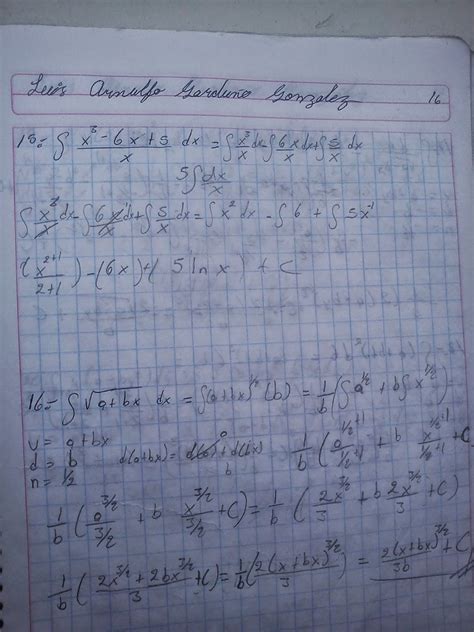 Luis Arnulfo Garduño Gonzalez 16
15.- ∫ x³ - 6x + 5 / x dx = ∫ x³/x dx - ∫ 6x/x dx + ∫ 5/x dx
5∫ dx/x
∫ x³/x dx - ∫ 6x/x dx + ∫ 5/x dx = ∫ x² dx - ∫ 6 + ∫ 5x⁻¹
(x²⁺¹/2+1) - (6x) + (5 ln x) + C
16.- ∫ √a+bx dx = ∫(a+bx)^1/2 (b) = 1/b (∫ a^1/2 + b∫ x^1/2)
v = a+bx
d = b d(a+bx) = d(a) + d(bx) = 1/b (a^1/2+1 / 1/2+1 + b x^1/2+1 / 1/2+1)
0 b
n = 1/2
1/b (a^3/2 / 3/2 + b x^3/2 / 3/2 + C) = 1/b (2x^3/2 / 3 + b 2x^3/2 / 3 + C)
1/b (2x^3/2 + 2bx^3/2 / 3 + C) = 1/b (2(x+bx)^3/2 / 3) = 2(x+bx)^3/2 / 3b + C